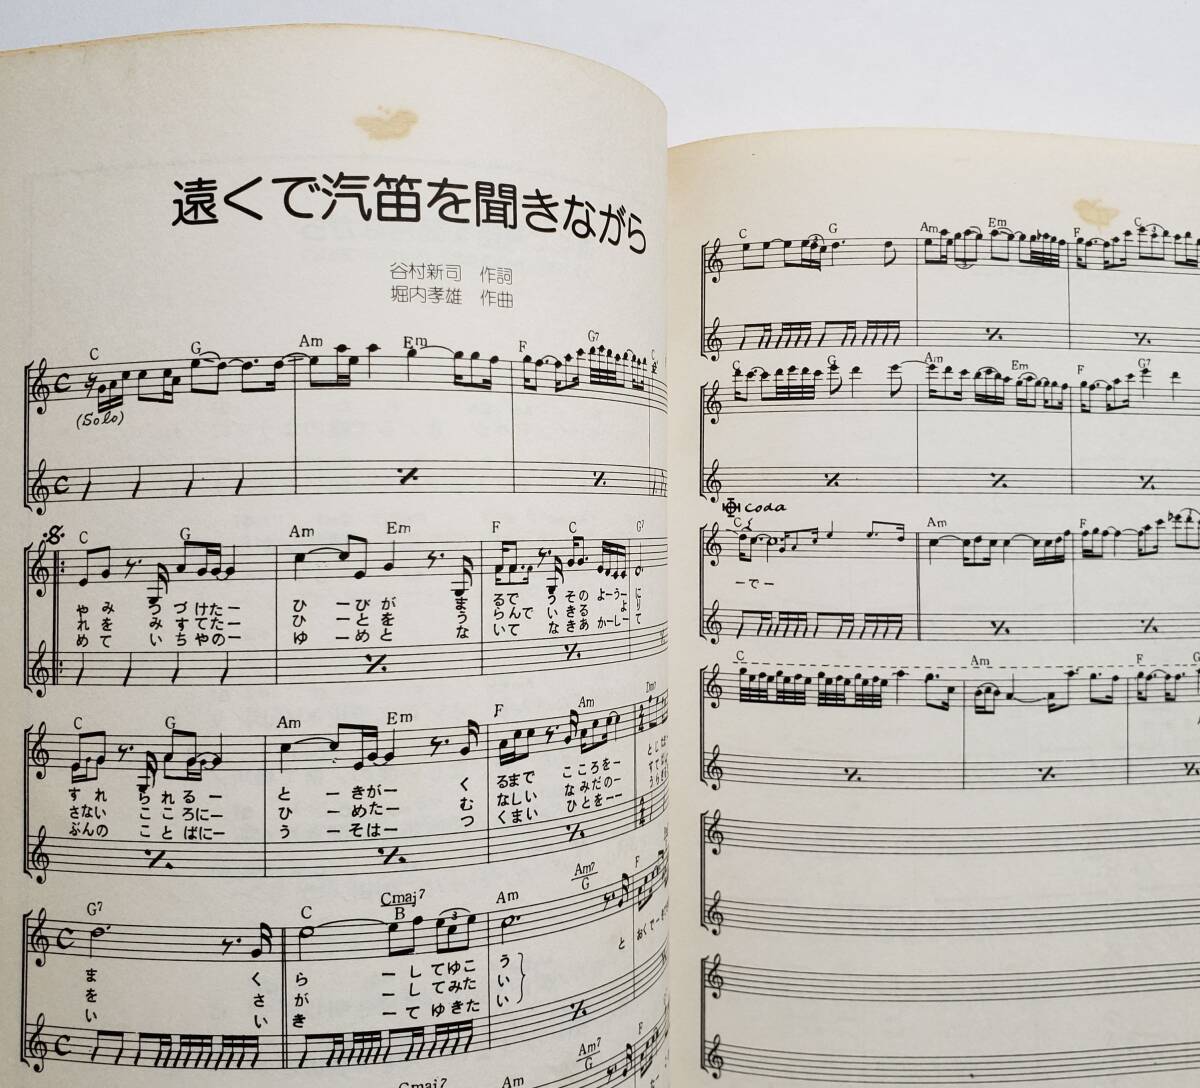 遠くで汽笛を聞きながら
谷村新司 作詞
堀内孝雄 作曲
C G Am Em F G7 C
(Solo)
C G Am Em F C G7
やみ つづけたー ひ ーびが ま るで そのよーうー に
れを みすてたー ひ ーとを う らんで いきる よ り
めて いちやの ゆ ーめと な いて なきあかーしー て
C G Am Em F Am Dm7
すれ られるー と ーきがー く るまで こころをー
さない こころにー ひ ーめたー む なしい なみだのー
ぶんの ことばにー う ーそはー つ くまい ひとをーー
G7 C Cmaj7/B Am Am7/G F
ま くら ーしてゆこう と おくでー
を さが ーしてみたい
い いき ーてゆきたい
Cmaj7 Am Am7/G F
C G Am Em F C
C G Am Em F G7
Coda
C Am F
ーでー
C Am F G